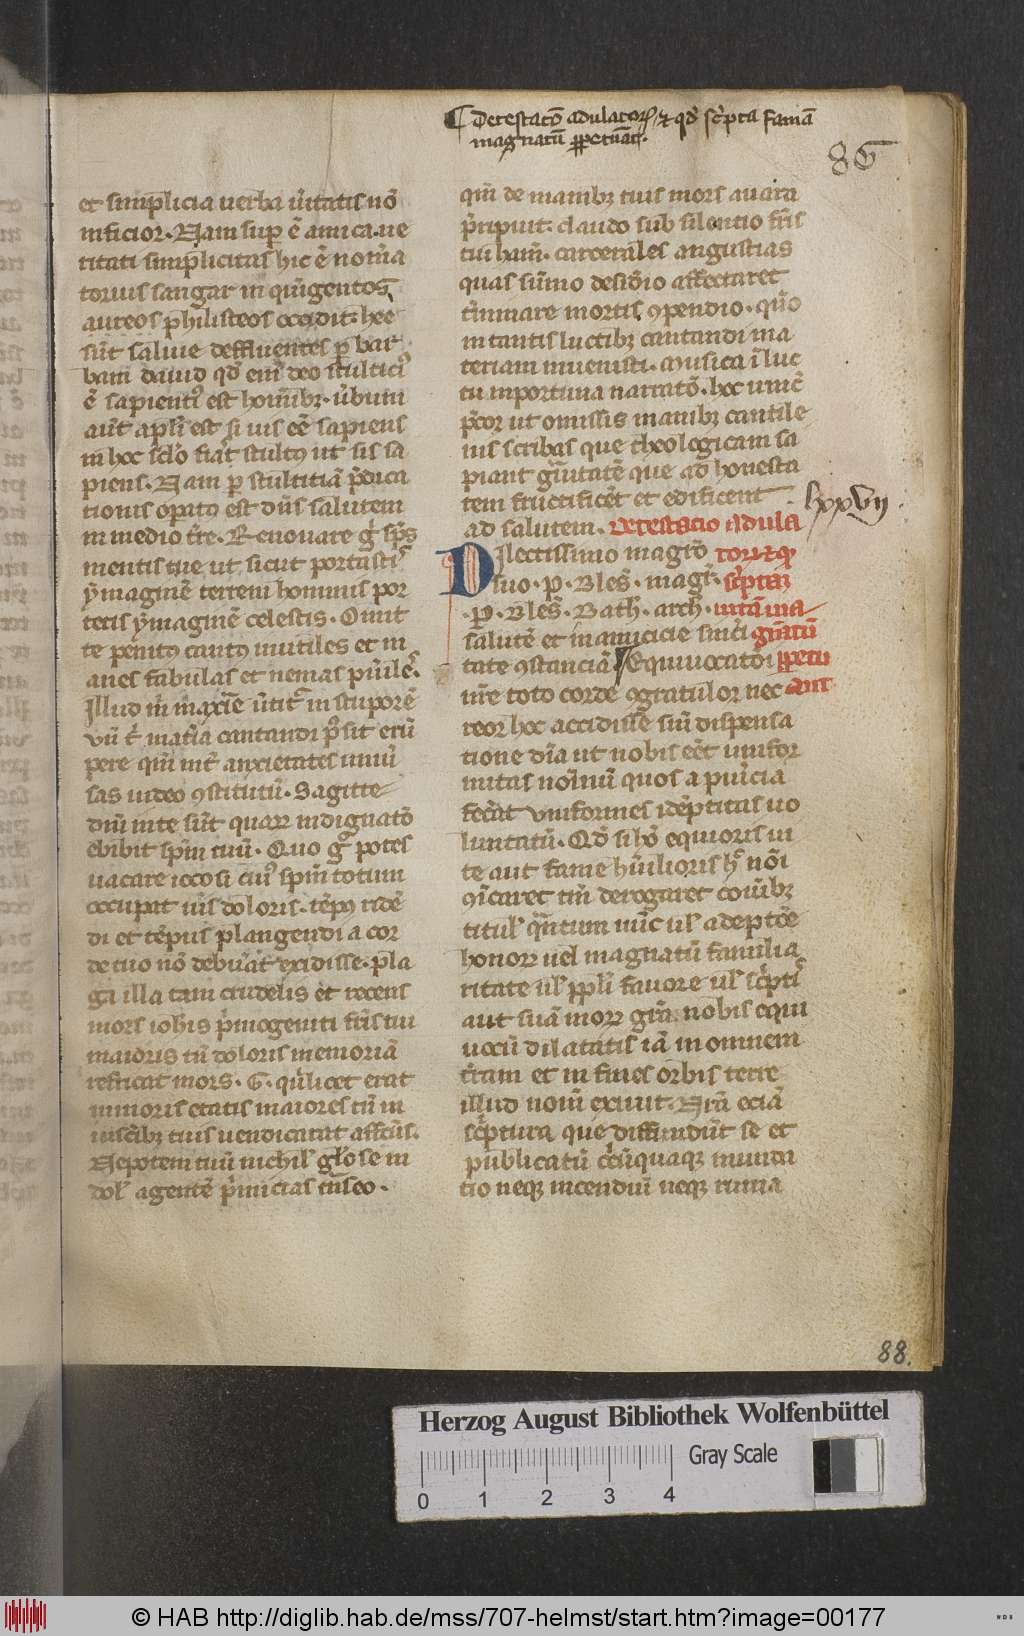 Detestatō adulatorꝝ et qď sc̄pta famā
magnatū ꝑpetuāt.
86
et simplicia uerba ūitatis nō
inficior. Nam suꝑ ē amica ue
ritati simplicitas hic ē nomīa
torius sangar in qͥngentos
aureos philisteos occidit: hee
sūt saliue deffluentes ꝑ bar
bam dauid qď em̄ deo stulticiꝰ
ē sapientiꝰ est homībꝫ. ūbum
aūt apl̄i est si uis eē sapiens
in hoc sclo fiat stultꝰ ut sis sa
piens. Nam ꝑ stultitiā p̄dica
tionis opatꝰ est dn̄s salutem
in medio tr̄e. Renouare gͦ sp̄s
mentis tue ut sicut portasti
ẏmaginē terreni hominis por
tes ẏmaginē celestis. Omit
te penitꝰ cantꝰ inutiles et in
anes fabulas et nenias pūiles.
Illud m̄ maxīe ūtit̄ in stuporē
materia cantandi
pere qm̄ int̄ anxietates
sas uideo ꝯstitutū. Sagitte
dn̄i in te sūt quarū indignatō
ebibit sp̄m tuū. Quo gͦ potes
uacare iocosi ciuꝰ sp̄m totum
occupat uis doloris. tēpꝰ ridē
di et tēpus plangendi a cor
de tuo nō debuāt exidisse. pla
ga illa tam crudelis et recens
mors ioh̄is p̄mogeniti fr̄is tui
maioris tn̄ doloris memoriā
refricat mors. G. qͥ licet erat
minoris etatis maiores tn̄ in
uiscibꝫ tuis uendicarat affcūs.
Nepotem tuū nichil glose in
dol agentē p̄micias
qm̄ de manibꝫ tuis mors auara
p̄ripuit. claudo sub silentio fr̄is
tui ham̄. carcerales angustias
quas sūmo desidīo affectaret
t̄minare mortis ꝯpendio. quō
in tantis luctibꝫ cantandi ma
teriam inuenisti. Musica ī luc
tu inportuna narratō. hoc unū
p̄cor ut omissis inanibꝫ cantile
nis scribas que theologicam sa
piant grauitatē que ad honesta
tem fructificēt et edificent
ad salutem. Detestacio adula
lxxvii
Dilectissimo magr̄o torꝝ et qꝫ
suo. P. Bles̄. magr̄. sc̄pta
P. Bles̄. Bath̄. arch̄. uitā ma
salutē et in amicicie sinc̄i gnātū
tate ꝯstanciā Equiuocatōi ꝑpetu
ur̄e toto corde ꝯgratulor nec ant
reor hoc accidisse siñ dispensa
tione dīa ut nobis eēt unifor
mitas noīnū quos a puīcia
fecāt uniformes idēptitas uo
luntatū. Qď si hō equioris ui
te aut fame hūilioris hͦ nōi
ꝯīcaret tn̄ derogaret couībꝫ
titul̄ qͣntum nūc ul̄ adeptōe
honorꝝ uel magnatū familia
ritate ul̄ ppl̄i fauore ul̄ sc̄ptꝰ
aut suā morꝝ grā nobis equi
uocū dilatatis iā in omnem
t̄ram et in fines orbis terre
illud nom̄ exiuit. Nrā eciā
sc̄ptura que diffundūt se et
publicatū c̄cūquaqꝫ inunda
tio neqꝫ incendiū neqꝫ ruina
88.
Herzog August Bibliothek Wolfenbüttel
Gray Scale
0 1 2 3 4
© HAB http://diglib.hab.de/mss/707-helmst/start.htm?image=00177